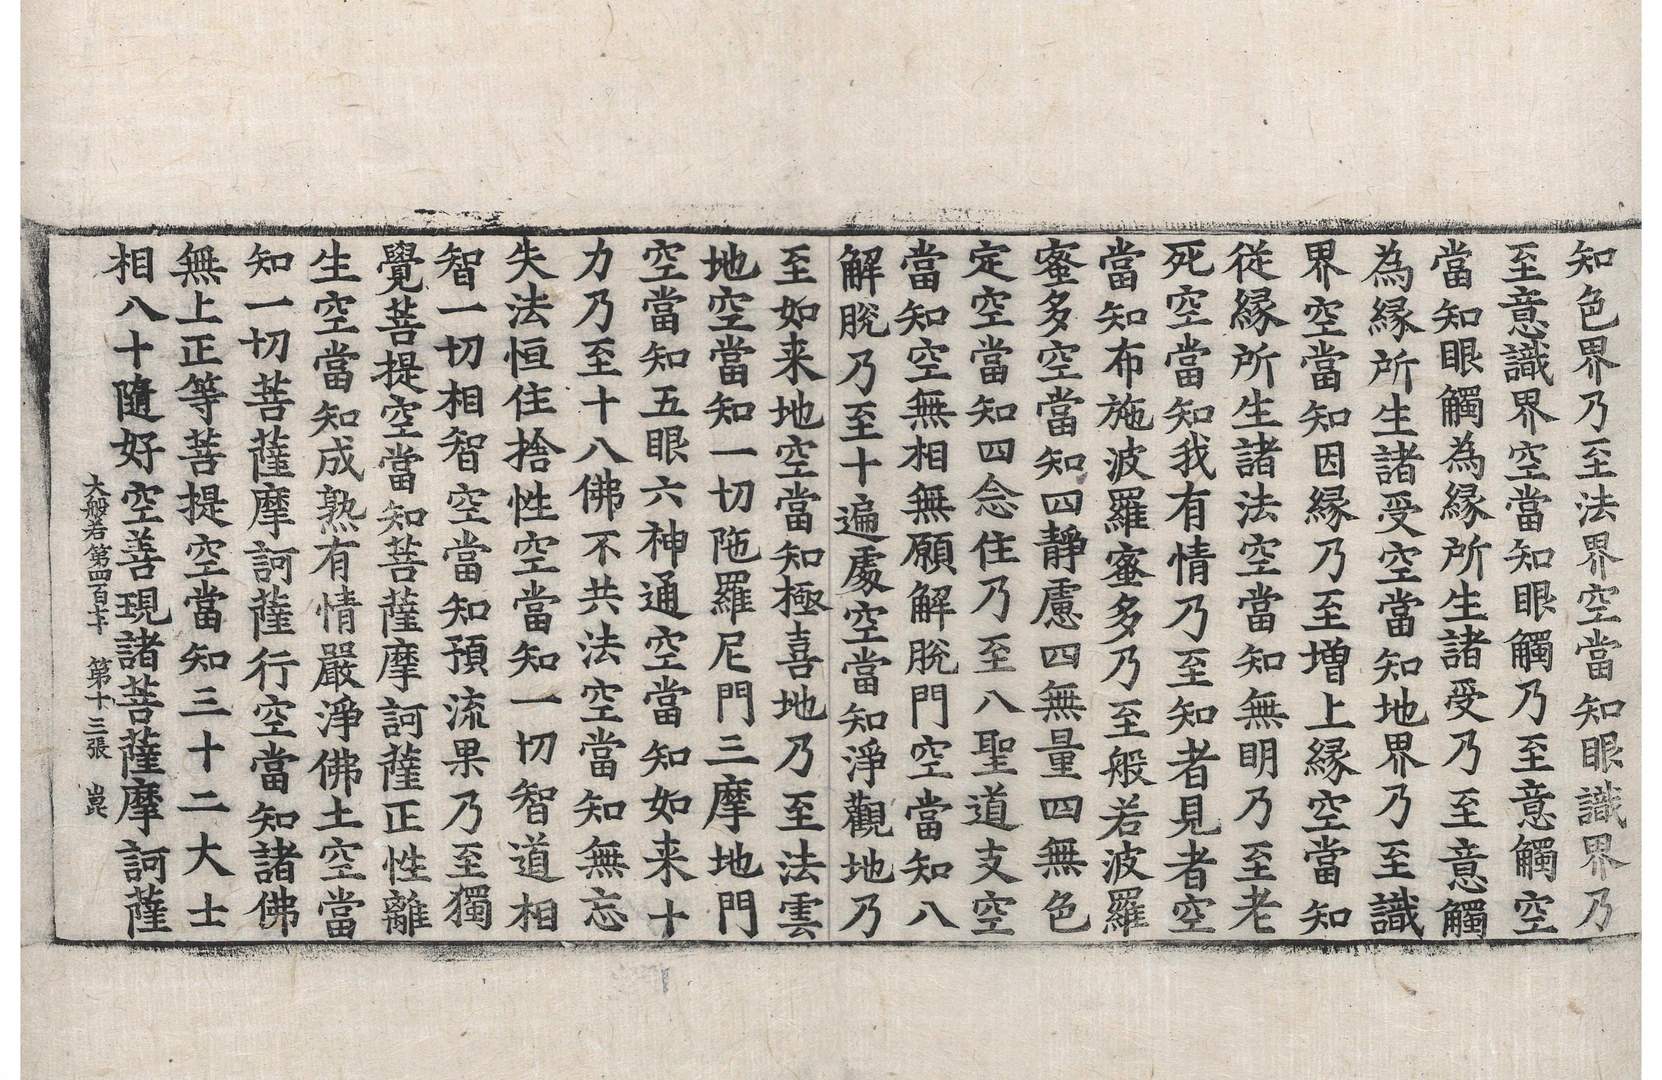 知色界乃至法界空當知眼識界乃
至意識界空當知眼觸乃至意觸空
當知眼觸為縁所生諸受乃至意觸
為縁所生諸受空當知地界乃至識
界空當知因縁乃至增上縁空當知
從縁所生諸法空當知無明乃至老
死空當知我有情乃至知者見者空
當知布施波羅蜜多乃至般若波羅
蜜多空當知四靜慮四無量四無色
定空當知四念住乃至八聖道支空
當知空無相無願解脫門空當知八
解脫乃至十遍處空當知淨觀地乃
至如来地空當知極喜地乃至法雲
地空當知一切陁羅尼門三摩地門
空當知五眼六神通空當知如来十
力乃至十八佛不共法空當知無忘
失法恒住捨性空當知一切智道相
智一切相智空當知預流果乃至獨
覺菩提空當知菩薩摩訶薩正性離
生空當知成熟有情嚴淨佛土空當
知一切菩薩摩訶薩行空當知諸佛
無上正等菩提空當知三十二大士
相八十隨好空善現諸菩薩摩訶薩
大般若第四百七十 第十三張 崑